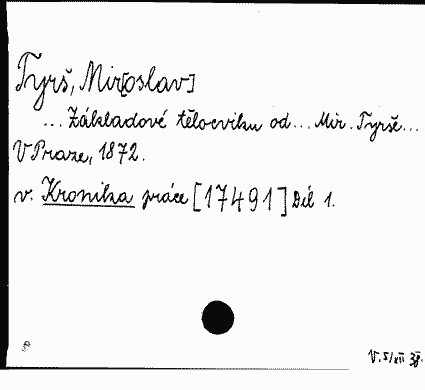 Tyrš, Mir[oslav]
... Základové tělocviku od ... Mir. Tyrše ...
V Praze, 1872.
v. Kronika práce [17491] Díl 1.
V. 5/XII 38.